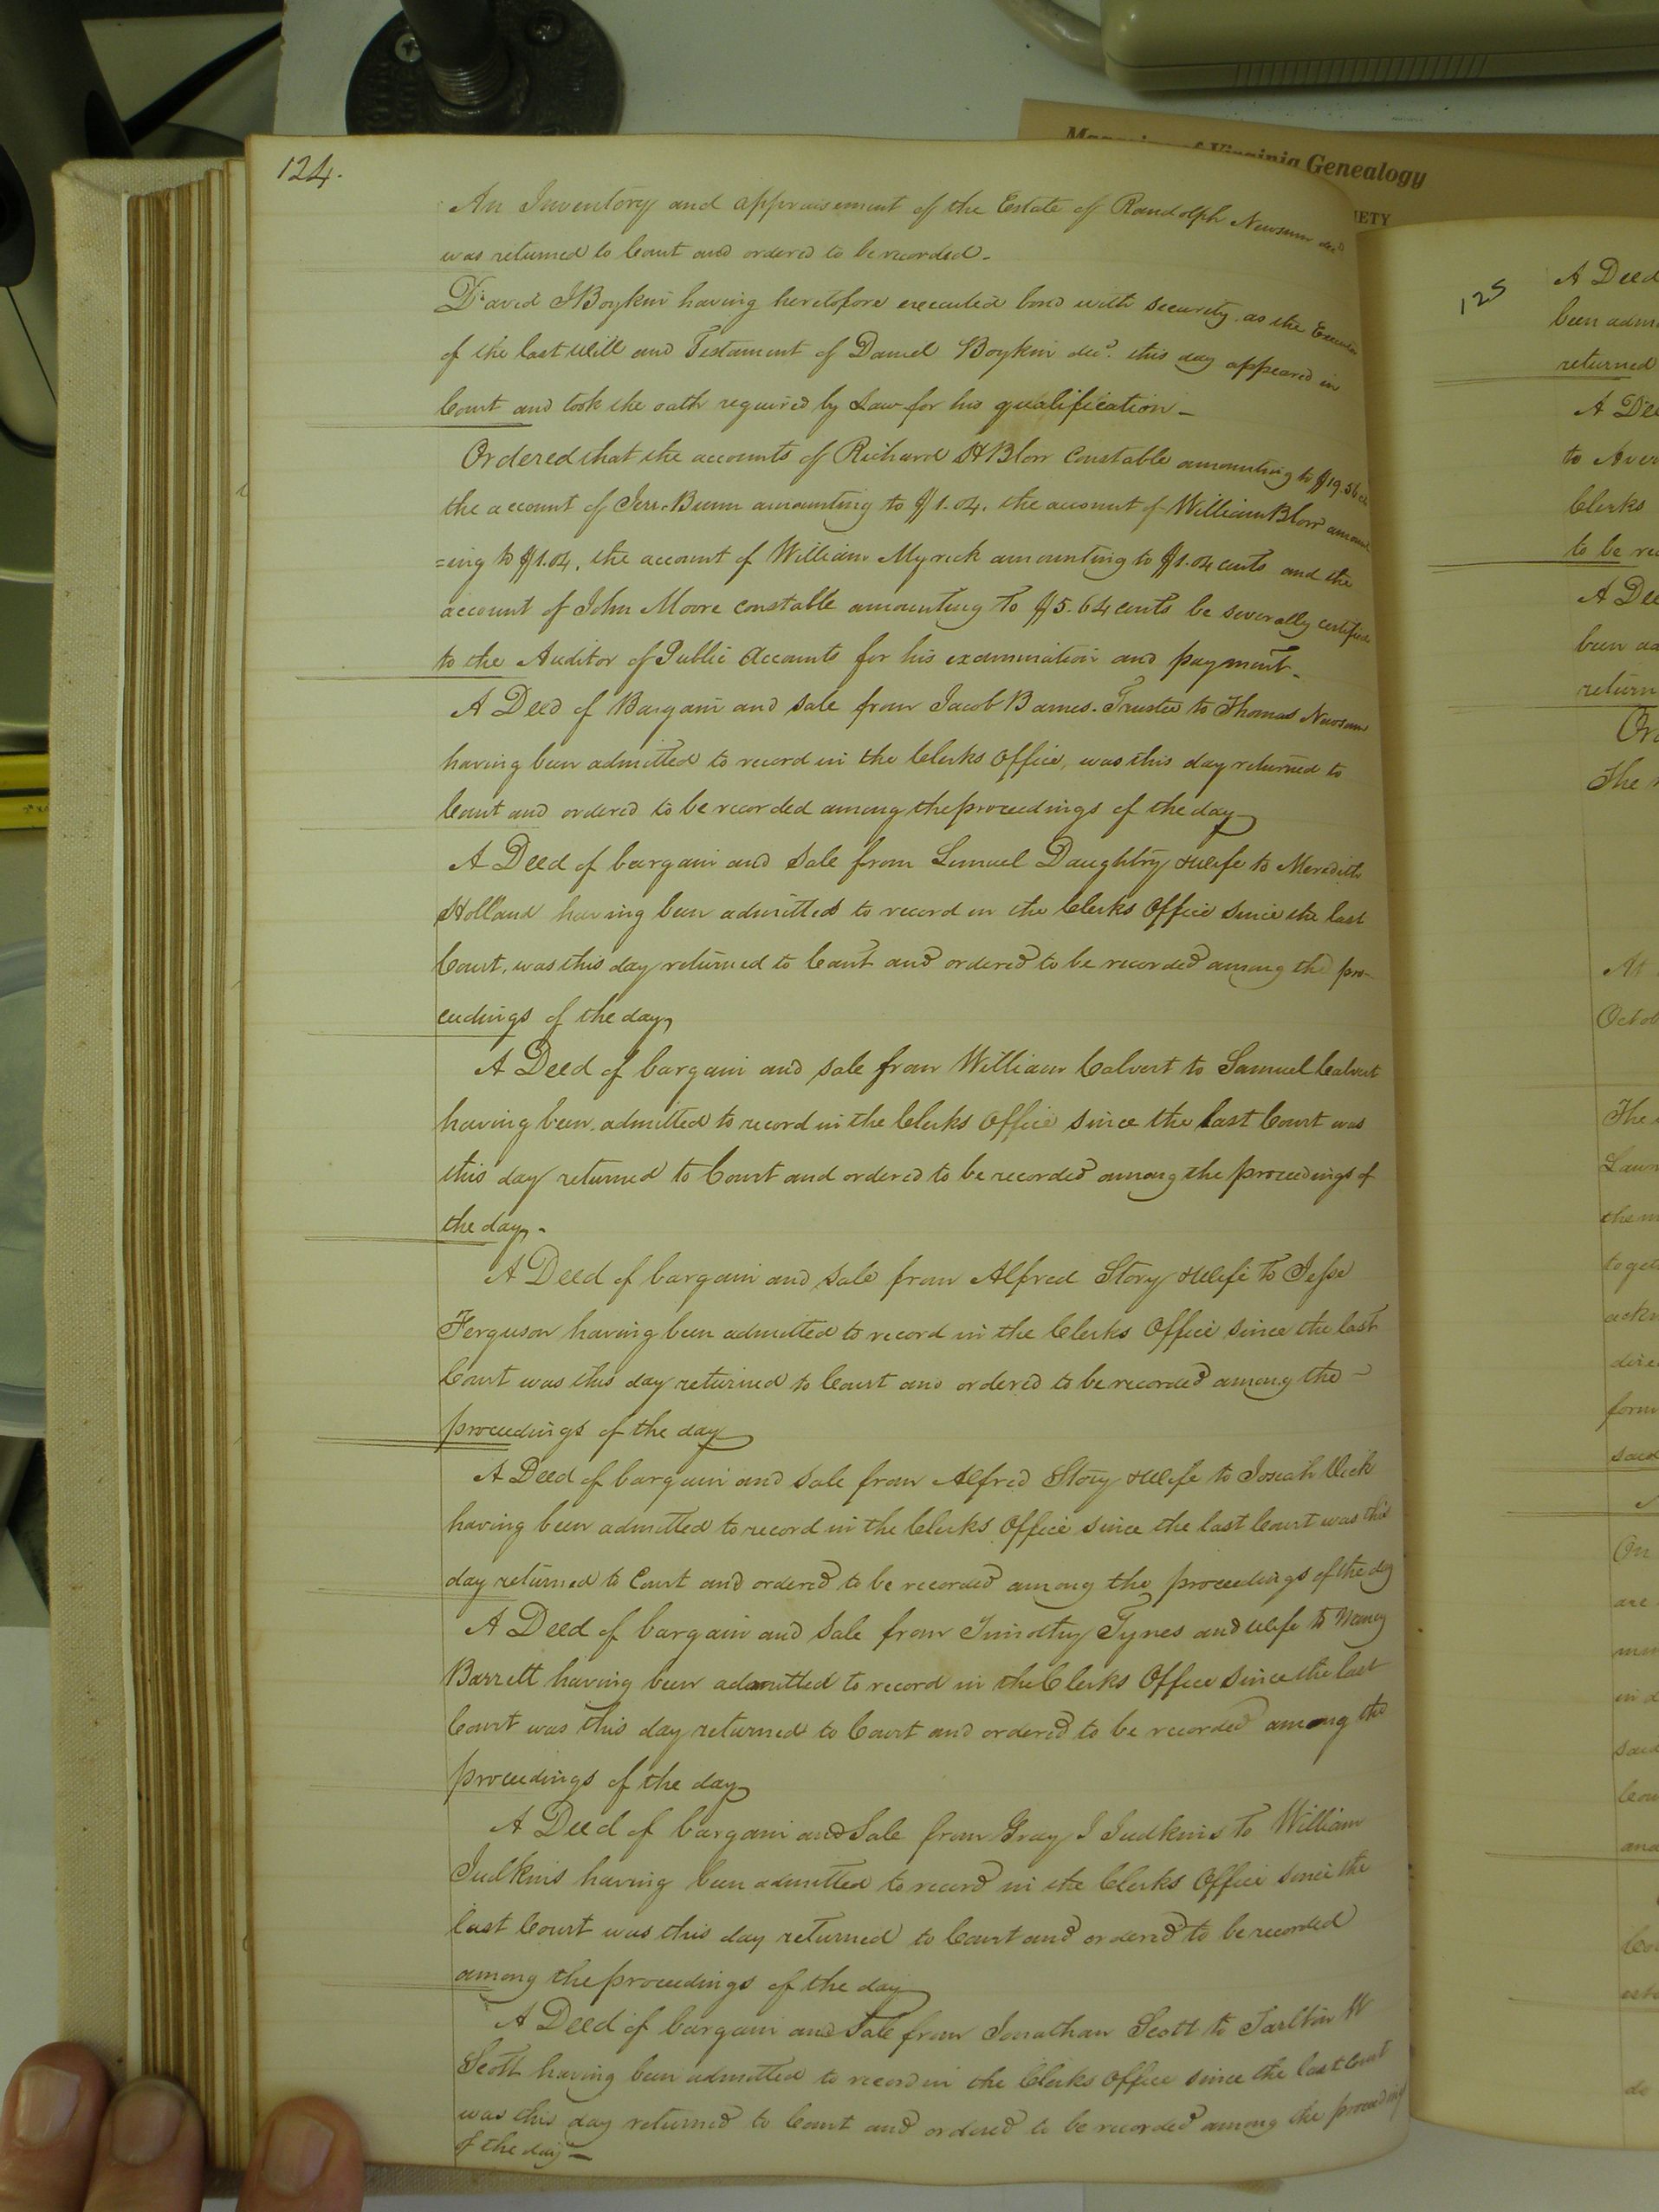 Magazine of Virginia Genealogy
IETY
124.
An Inventory and appraisement of the Estate of Randolph Newsum decd
was returned to Court and ordered to be recorded.
David J Boykin having heretofore executed bond with security, as the Executor
of the last Will and Testament of Daniel Boykin decd. this day appeared in
Court and took the oath required by Law for his qualification —
Ordered that the accounts of Richard H Blow Constable amounting to $19.56
the account of Bunn amounting to $1.04. the account of William Blow amount
=ing to $1.04, the account of William Myrick amounting to $1.04 cents and the
account of John Moore constable amounting to $5.64 cents be severally certified
to the Auditor of Public Accounts for his examination and payment.
A Deed of Bargain and Sale from Jacob Barnes. Trustee to Thomas Newsum
having been admitted to record in the Clerks Office, was this day returned to
Court and ordered to be recorded among the proceedings of the day
A Deed of bargain and sale from Lemuel Daughtry & Wife to Meredith
Holland having been admitted to record in the Clerks Office since the last
Court, was this day returned to Court and ordered to be recorded among the pro-
ceedings of the day
A Deed of bargain and sale from William Calvert to Samuel Calvert
having been admitted to record in the Clerks Office since the last Court was
this day returned to Court and ordered to be recorded among the proceedings of
the day.
A Deed of bargain and sale from Alfred Story & Wife to Jesse
Ferguson having been admitted to record in the Clerks Office since the last
Court was this day returned to Court and ordered to be recorded among the
proceedings of the day
A Deed of bargain and sale from Alfred Story & Wife to Josiah Vick
having been admitted to record in the Clerks Office since the last Court was this
day returned to Court and ordered to be recorded among the proceedings of the day
A Deed of bargain and sale from Timothy Tynes and Wife to Nancy
Barrett having been admitted to record in the Clerks Office since the last
Court was this day returned to Court and ordered to be recorded among the
proceedings of the day
A Deed of bargain and Sale from Gray J Judkins to William
Judkins having been admitted to record in the Clerks Office since the
last Court was this day returned to Court and ordered to be recorded
among the proceedings of the day
A Deed of bargain and Sale from Jonathan Scott to Tarlton W
Scott having been admitted to record in the Clerks Office since the last Court
was this day returned to Court and ordered to be recorded among the proceedings
of the day —
125
A Deed
been adm
returned
A Dee
to
Clerks
to be re
A Dee
been ad
return
Or
The
At
Octob
The
Law
them
toget
ackn
dire
form
said
On
are
men
in d
said
Cou
and
Co
de